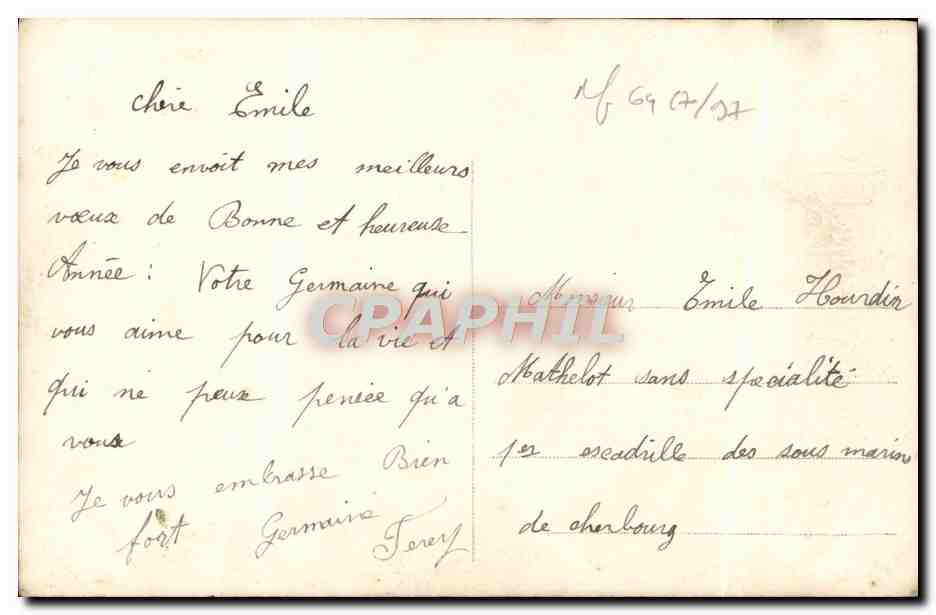 chère Emile
Je vous envoit mes meilleurs
vœux de Bonne et heureuse
Année : Votre Germaine qui
vous aime pour la vie et
qui ne peux pensée qu'a
vous
Je vous embrasse Bien
fort Germaine
Terey
64 (7/97
Monsieur Emile Hourdin
Mathelot sans spécialité
1er escadrille des sous marins
de cherbourg
CPAPHIL